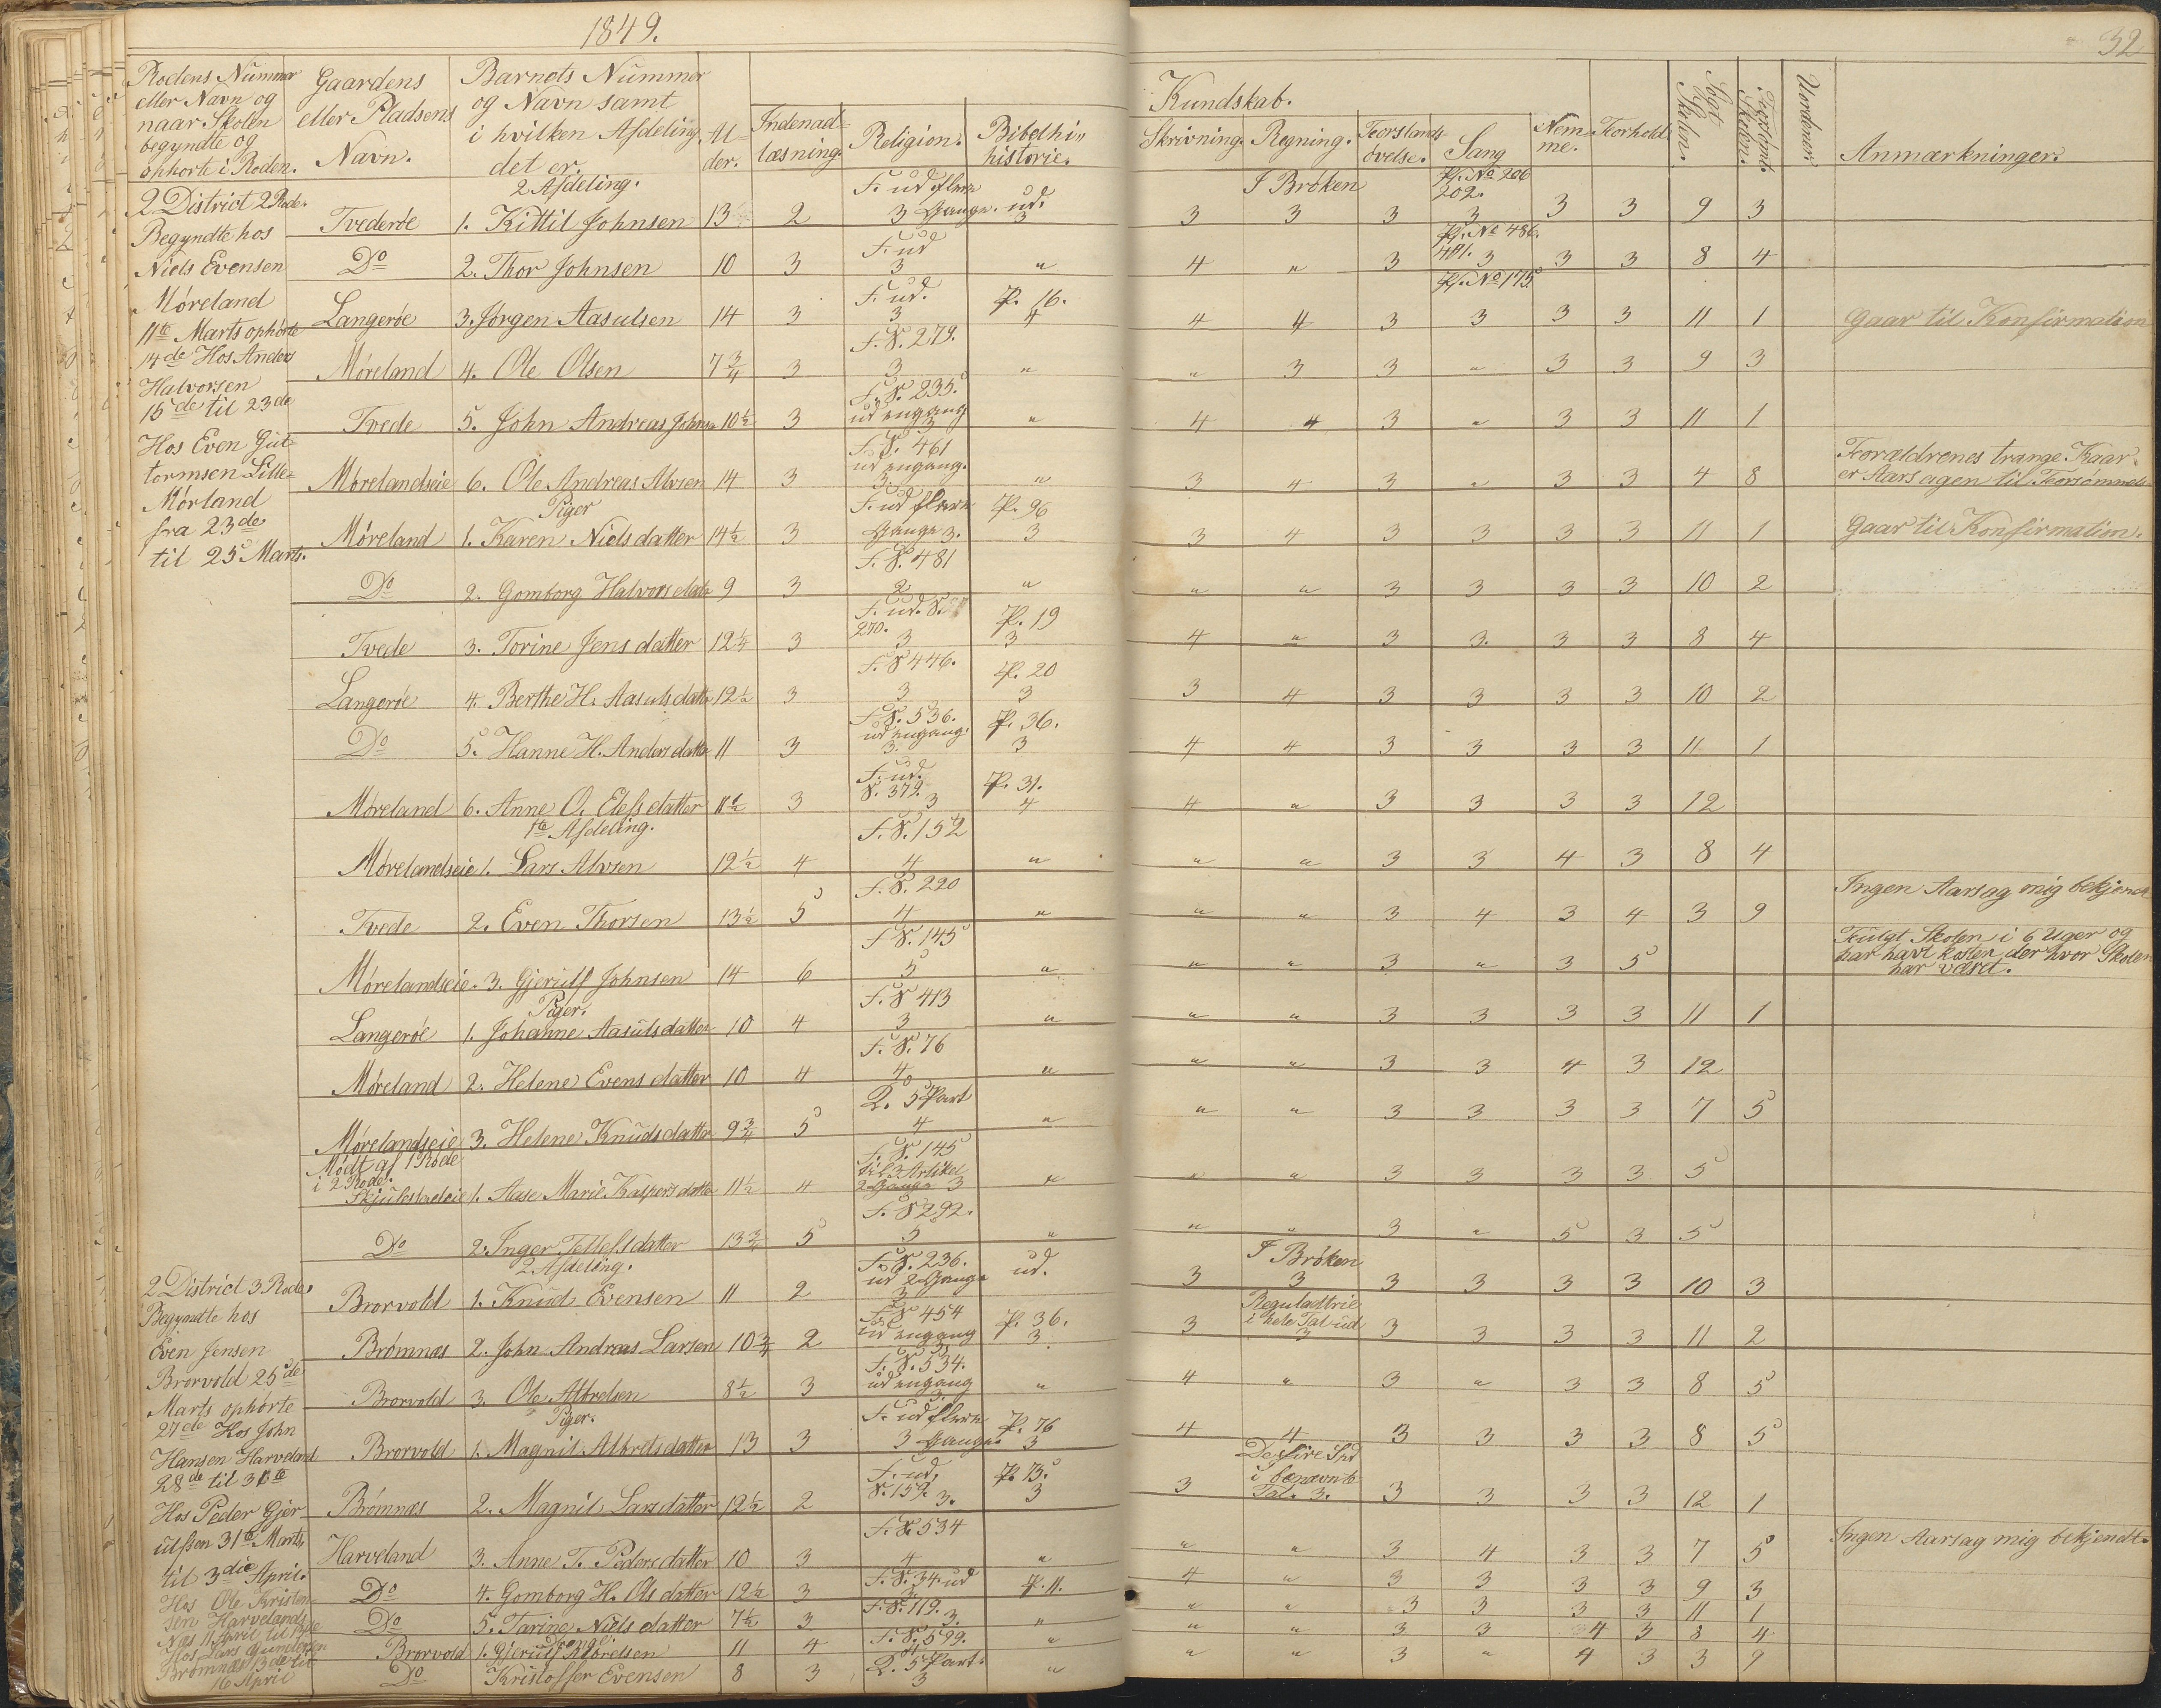 1849.
32
Rodens Nummer eller Navn og naar Skolen begyndte og ophørte i Roden.
Gaardens eller Pladsens Navn.
Barnets Nummer og Navn samt i hvilken Afdeling det er.
Al-der.
Indenad-læsning.
Religion.
Bibelhi-storie.
Kundskab.
Skrivning.
Regning.
Forstands-øvelse.
Sang
Nem-me.
Forhold
Søgt Skolen.
Forsømt Skolen.
Uordener
Anmærkninger.
2 District 2 Rode.
Begyndte hos
Niels Evensen
Møreland
11te Marts ophørte
14de Hos Anders
Halvorsen
15de til 23de
Hos Even Gut-
tormsen Lille-
Mørland
fra 23de
til 25 Marts.
2 Afdeling.
Tvederøe 1. Kittil Johnsen 13 2 F. ud flere 3 Gange. ud. 3 3 I Brøken 3 3 Ps. No 206 202. 3 3 3 9 3
Do 2. Thor Johnsen 10 3 F. ud 3 " 4 " 3 Ps. No 486. 491. 3 3 3 8 4
Langerøe 3. Jørgen Aasulsen 14 3 F. ud. 3 P. 16. 4 4 4 3 Ps. No 175 3 3 3 11 1 Gaar til Konfirmation
Møreland 4. Ole Olsen 7 3/4 3 F. S. 279. 3 " " 3 3 " 3 3 9 3
Tvede 5. John Andreas Johnsen 10 1/2 3 F. S. 235. ud engang 3 " 4 4 3 " 3 3 11 1
Mørelandseie 6. Ole Andreas Alvsen 14 3 F. S. 461 ud engang. 3 " 3 4 3 " 3 3 4 8 Forældrenes trange Kaar er Aarsagen til Forsømmels
Piger
Møreland 1. Karen Nielsdatter 14 1/2 3 F. ud flere Gange 3. P. 96 3 3 4 3 3 3 3 11 1 Gaar til Konfirmation.
Do 2. Gomborg Halvorsdatter 9 3 F. S. 481 2 " " " 3 3 3 3 10 2
Tvede 3. Torine Jensdatter 12 1/4 3 F. ud. S. 270. 3 P. 19 3 4 " 3 3. 3 3 8 4
Langerøe 4. Berthe H. Aasulsdatter 12 1/2 3 F. S 446. 3 P. 20 3 3 4 3 3 3 3 10 2
Do 5. Hanne H. Andersdatter 11 3 F. S. 536. ud engang. 3. P. 36. 3 4 4 3 3 3 3 11 1
Møreland 6. Anne O. Elefsdatter 11 1/2 3 F. ud. S. 379. 3 P. 31. 4 4 " 3 3 3 3 12
1te Afdeling.
Mørelandseie 1. Lars Alvsen 12 1/2 4 F. S. 152 4 " " " 3 3 4 3 8 4
Tvede 2. Even Thorsen 13 1/2 5 F. S. 220 4 " " " 3 4 3 4 3 9 Ingen Aarsag mig bekjendt
Mørelandseie. 3. Gjerulf Johnsen 14 6 F S. 145 5 " " " 3 " 3 5 Fulgt Skolen i 6 Uger og har havt kosten der hvor Skolen har været.
Piger.
Langerøe 1. Johanne Aasulsdatter 10 4 F. S 413 3 " " " 3 3 3 3 11 1
Møreland 2. Helene Evensdatter 10 4 F. S. 76 4 " " " 3 3 4 3 12
Mørelandseie 3. Helene Knudsdatter 9 3/4 5 L. 5 Part 4 " " " 3 3 3 3 7 5
Mødt af 1 Rode
i 2 Rode.
Skjulestadeie 1. Aase Marie Kaspersdatter 11 1/2 4 F. S. 145 til 3 Artikel 2 Gange 3 " " " 3 3 3 3 5
Do 2. Inger Tellefsdatter 13 3/4 5 F. S 292. 5 " " " 3 " 5 3 5
2 District 3 Rode.
Begyndte hos
Even Jensen
Brorvold 25de
Marts ophørte
27de Hos John
Hansen Harveland
28de til 31te
Hos Peder Gjer-
ulfsen 31te Marts
til 3die April.
Hos Ole Kristen-
sen Harvelands
Næs 11 April til 13de
Hos Lars Gundersen
Brømnæs 13de til
16 April
2 Afdeling.
Brorvold 1. Knud Evensen 11 2 F. S. 236. ud 2 Gange 3 ud. 3 I Brøken 3 3 3 3 3 10 3
Brømnæs 2. John Andreas Larsen 10 3/4 2 F. S 454 ud engang 3 P. 36. 3. 3 Reguladtrie i hele Tal ud 3 3 3 3 3 11 2
Brorvold 3. Ole Albretsen 8 1/2 3 F. S. 534. ud engang 3. " 4 " 3 " 3 3 8 5
Piger.
Brorvold 1. Magnil Albretsdatter 13 3 F. ud flere 3 Gange. P. 76 3 4 4 3 3 3 3 8 5
Brømnæs 2. Magnil Larsdatter 12 1/2 2 F. ud, S. 159. 3. P. 73. 3 3 De fire Spd i benævnte Tal. 3. 3 3 3 3 12 1
Harveland 3. Anne T. Pedersdatter 10 3 F. S. 534 4 " " " 3 4 3 3 7 5 Ingen Aarsag mig bekjendt.
Do 4. Gomborg H. Olsdatter 12 1/2 3 F. S. 34. ud 3 P. 11. 4 " 3 3 3 3 9 3
Do 5. Tarine Nielsdatter 7 1/2 3 F. S. 119. 3. " " " 3 3 3 3 11 1
Drenge.
Brorvold 1. Gjerulf Albretsen 11 4 F. S. 599. 4 " " " 3 3 4 3 8 4
Do Kristoffer Evensen 8 3 L. 5 Part. 3 " " " 3 " 4 3 3 9